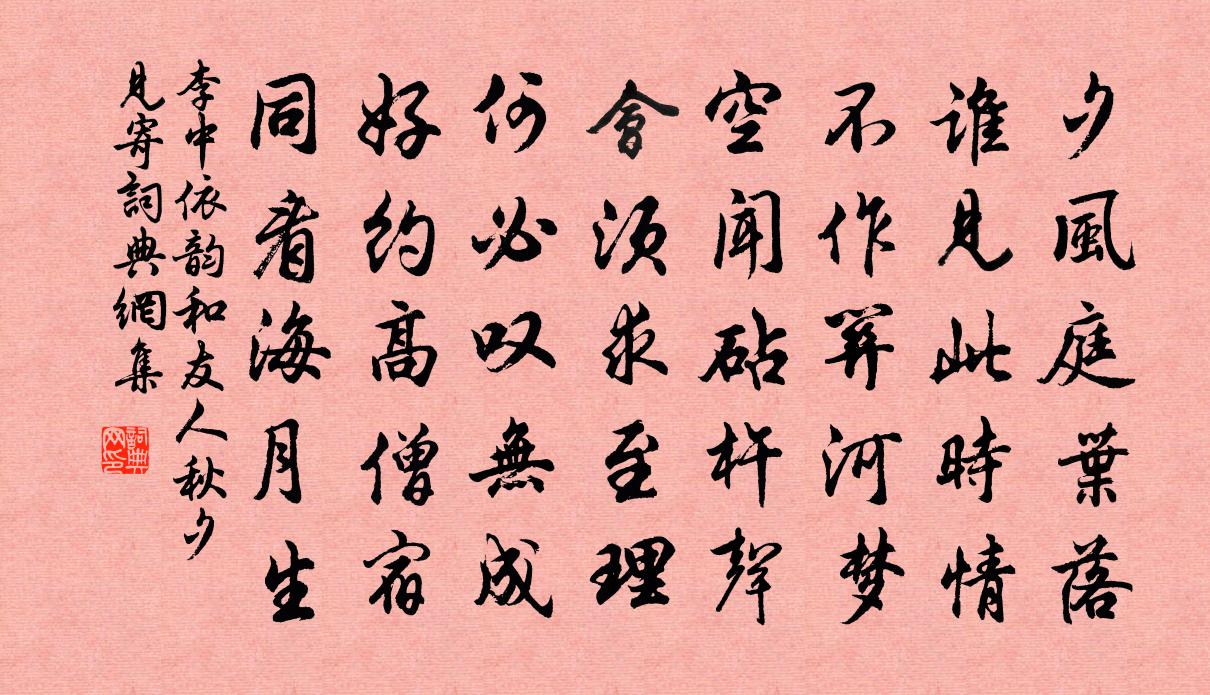 夕風庭葉落
誰見此時情
不作算河梦
空聞砧杵聲
會須求至理
何必叹無成
好約高僧宿
同看海月生
李中依韵和友人秋夕
見寄詞典網集
詞典网印